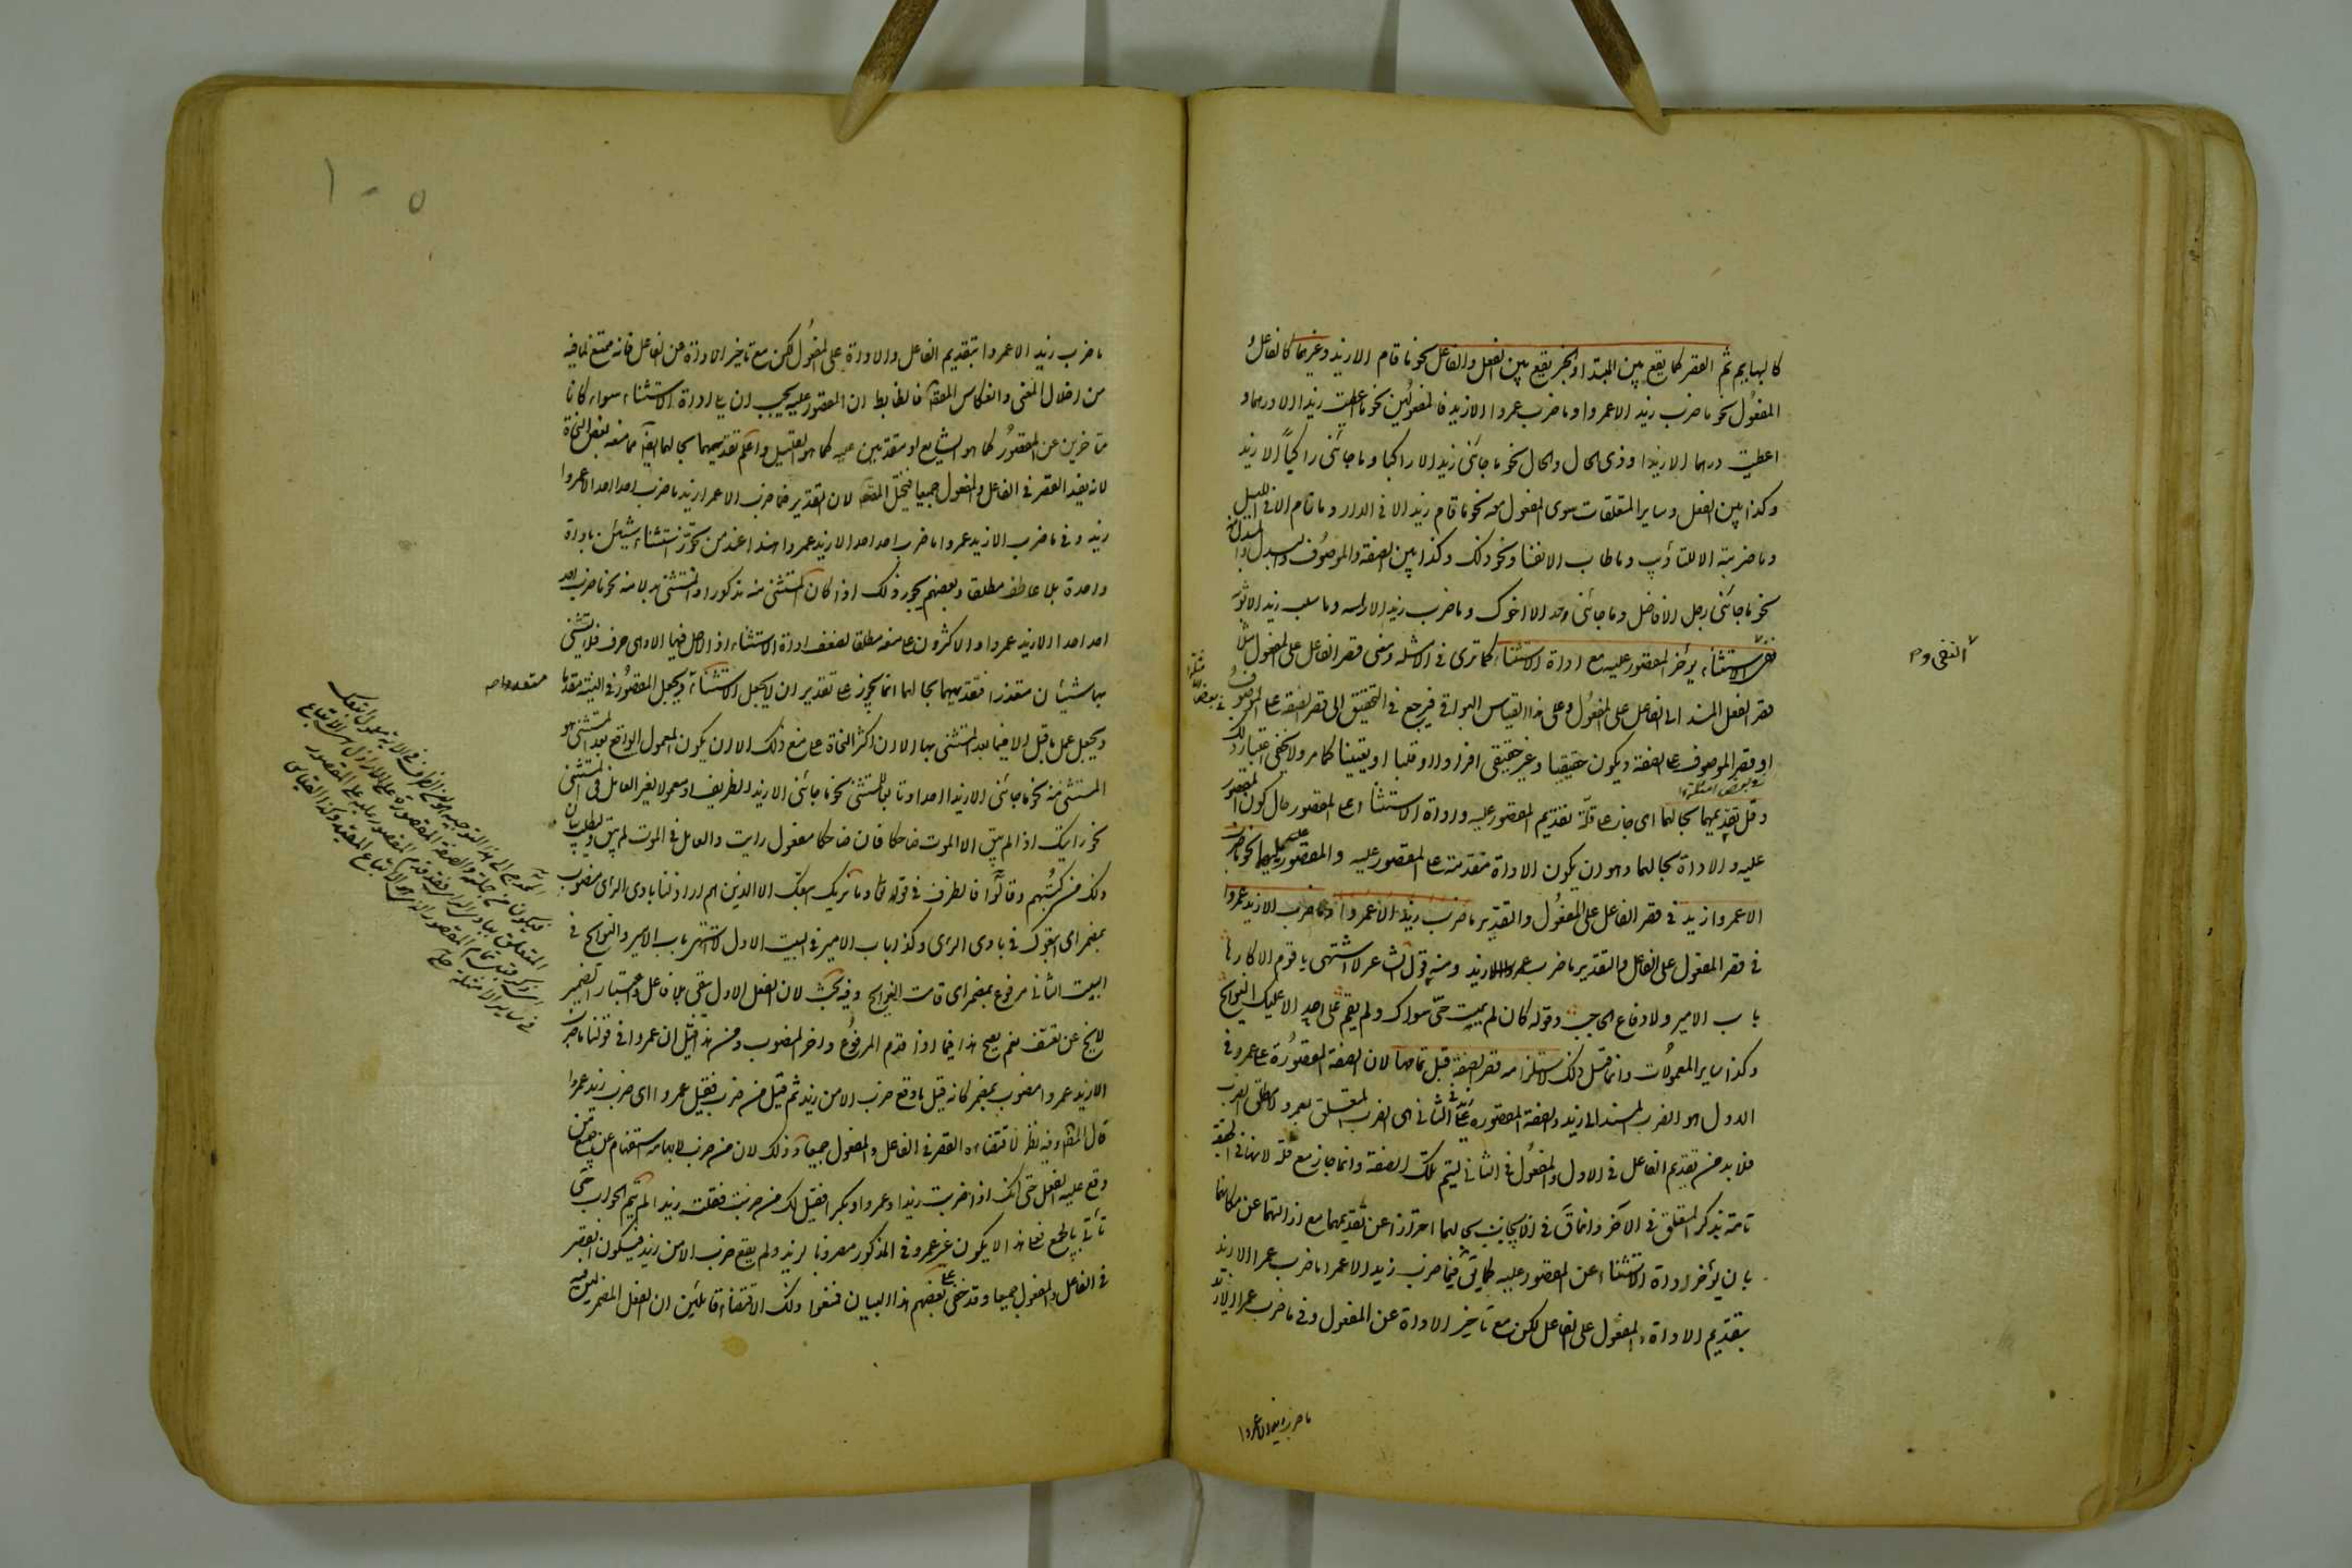 كالبهايم ثم القصر كما يقع بين المبتدأ والخبر يقع بين الفعل والفاعل نحو ما قام الا زيد وغيرهما كالفاعل و
المفعول نحو ما ضرب زيد الا عمروا وما ضرب عمروا الا زيد والمفعولين نحو ما اعطيت زيدا الا درهما و
اعطيت درهما الا زيدا وذى الحال والحال نحو ما جائنى زيد الا راكبا وما جائنى راكباً الا زيد
وكذا بين الفعل وساير المتعلقات سوى المفعول معه نحو ما قام زيد الا فى الدار وما قام الا فى الليل
وما ضربته الا للتأديب وما طاب الا نفسا ونحو ذلك وكذا بين الصفة والموصوف والبدل والمبدل منه
نحو ما جائنى رجل الا فاضل وما جائنى احد الا اخوك وما ضرب زيد الا راسه وما سلب زيد الا ثوبه
ففى الاستثناء يؤخر المقصور عليه مع اداة الاستثناء كما ترى فى الامثلة ومعنى قصر الفاعل على المفعول مثلا
قصر الفعل المسند الى الفاعل على المفعول وعلى هذا القياس البواقى فيرجع فى التحقيق الى قصر الصفة على الموصوف
او قصر الموصوف على الصفة ويكون حقيقيا وغير حقيقى افرادا او قلبا او تعيينا كما مر ولا يخفى اعتبار ذلك
وقل تقديمهما بحالهما اى جاز على قلة تقديم المقصور عليه واداة الاستثناء على المقصور حال كون المقصور
عليه والاداة بحالهما وهو ان يكون الاداة متقدمة على المقصور عليه والمقصور عليه يليها نحو ما ضرب
الا عمروا زيد فى قصر الفاعل على المفعول والتقدير ما ضرب زيد الا عمروا وما ضرب الا زيد عمروا
فى قصر المفعول على الفاعل والتقدير ما ضرب عمروا الا زيد ومنه قول الشاعر لا اشتهى يا قوم الا كارها
باب الامير ولا دفاع الحاجب وقوله كان لم يمت حى سواك ولم يقم على احد الا عليك النوايح
وكذا ساير المعمولات وانما قل ذلك لاستلزامه قصر الصفة قبل تمامها لان الصفة المقصورة على عمرو فى
الاول هو الضرب المسند الى زيد والصفة المقصورة على زيد فى الثانى هى الضرب المتعلق بعمرو لا مطلق الضرب
فلا بد من تقديم الفاعل فى الاول والمفعول فى الثانى ليتم تلك الصفة وانما جاز مع قلة لانها فى الحقيقة
تامة بذكر المتعلق فى الاخر وانما قال بحالهما احترازا عن تقديمهما مع ازالتهما عن مكانهما
بان يؤخر اداة الاستثناء عن المقصور عليه كما يق فيما ضرب زيد الا عمرا ما ضرب عمرا الا زيد
بتقديم الاداة والمفعول على الفاعل لكن مع تأخير الاداة عن المفعول وفى ما ضرب عمرا الا زيد
النفى و م
ما ضرب زيد الا عمروا
١٠٥
ما ضرب زيد الا عمروا بتقديم الفاعل والاداة على المفعول لكن مع تاخير الاداة عن الفاعل فانه ممتنع لما فيه
من اختلال المعنى وانعكاس المقص فالضابط ان المقصور عليه يجب ان يلى اداة الاستثناء سواء كانا
متاخرين عن المقصور كما هو الشايع او متقدمين عليه كما هو القليل واعلم تقديمهما بحالهما ايضا مما منعه بعض النحاة
لانه يفيد القصر فى الفاعل والمفعول جميعا فيختل المقص لان التقدير فى ما ضرب الا عمرا زيد ما ضرب احد احدا الا عمروا
زيد وفى ما ضرب الا زيد عمروا ما ضرب احد احدا الا زيد عمروا هذا عند من يجوز استثناء شيئين باداة
واحدة بلا عاطف مطلقا وبعضهم يجوز ذلك اذا كان المستثنى منه مذكورا والمستثنى بدلا منه نحو ما ضرب احد
احدا الا زيد عمروا والاكثرون على منعه مطلقا لضعف اداة الاستثناء اذ الاصل فيها الا وهى حرف فلا يستثنى
بها شيئان متعددا فتقديمهما بحالهما انما يجوز على تقدير ان لا يجعل الاستثناء ويجعل المقصور فى النية مقدما
ويجعل عمل ما قبل الا فيما بعد المستثنى بها الا ان اكثر النحاة على منع ذلك الا ان يكون المعمول الواقع بعد المستثنى هو
المستثنى منه نحو ما جائنى الا زيدا احد او تابعا للمستثنى نحو ما جائنى الا زيد الظريف او معمولا لغير العامل فى المستثنى
نحو رايتك اذا لم يبق الا الموت ضاحكا فان ضاحكا مفعول رايت والعامل فى الموت لم يبق ويطلب بيان
ذلك من كتبهم وقالوا فالظرف فى قوله تعالى وما نريك اتبعك الا الذين هم اراذلنا بادى الراى منصوب
بمضمر اى اتبعوك فى بادى الراى وكذا باب الامير فى البيت الاول لا اشتهى باب الامير والنوايح فى
البيت الثانى مرفوع بمضمر اى قامت النوايح وفيه بحث لان الفعل الاول يبقى بلا فاعل واعتبار الضمير
لا يخ عن تعسف نعم يصح هذا فيما اذا قدم المرفوع واخر المنصوب ومن هذا قيل ان عمروا فى قولنا ما ضرب
الا زيد عمروا منصوب بمضمر كانه قيل ما وقع ضرب الا من زيد ثم قيل من ضرب فقيل عمروا اى ضرب زيد عمروا
قال المص وفيه نظر لاقتضاءه القصر فى الفاعل والمفعول جميعا وذلك لان من ضرب لابهامه استفهام عن جميع من
وقع عليه الفعل حتى انك اذا ضربت زيدا وعمروا وبكرا فقيل لك من ضربت فقلت زيدا لم يتم الجواب حتى
تأتى بالجميع فعلى هذا لا يكون غير عمرو فى المذكور مضروبا لزيد ولم يقع ضرب الا من زيد فيكون القصر
فى الفاعل والمفعول جميعا وقد خفى على بعضهم هذا البيان فمنعوا ذلك الاقتضاء قائلين ان الفعل المضمر ليس فيه